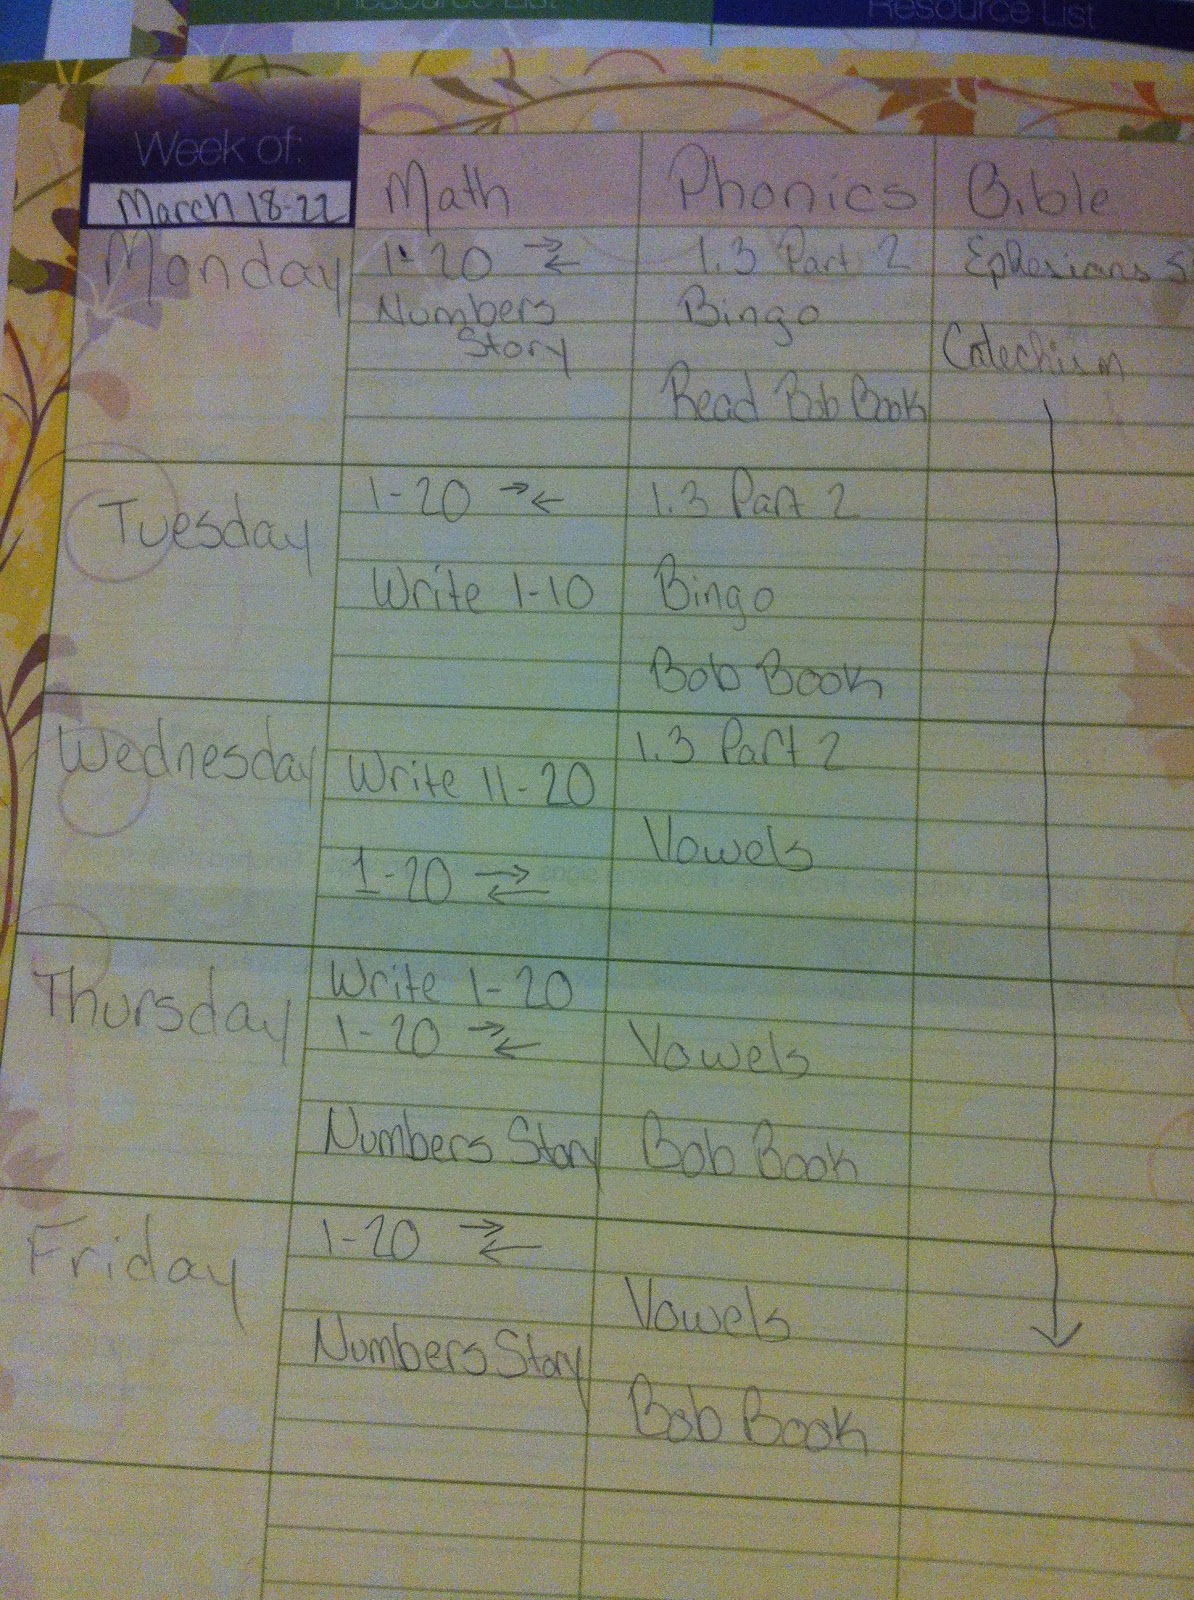 Resource List Resource List
Week of:
March 18-22 Math Phonics Bible
Monday 1-20 1.3 Part 2 Ephesians 5
Numbers Bingo
Story Catechism
Read Bob Book
Tuesday 1-20 1.3 Part 2
Write 1-10 Bingo
Bob Book
Wednesday 1.3 Part 2
Write 11-20
Vowels
1-20
Thursday Write 1-20
1-20 Vowels
Numbers Story Bob Book
Friday 1-20
Vowels
Numbers Story
Bob Book